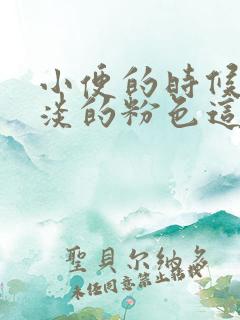 小便的時候
淡的粉色這
聖貝尔納多
未任同意禁止轉載